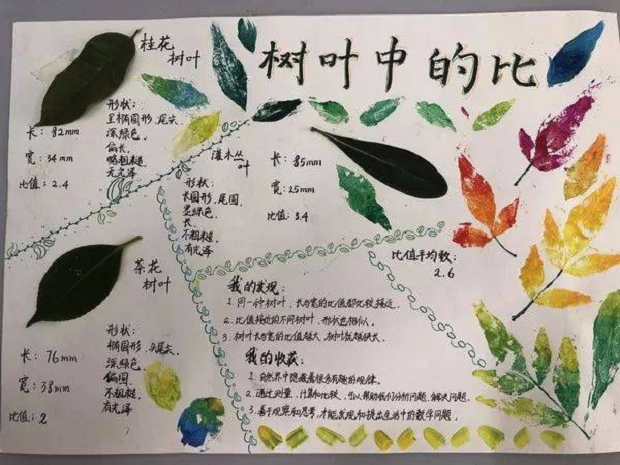 树叶中的比
桂花
树叶
形状：
呈椭圆形，尾尖
深绿色。
偏长
略粗糙
无光泽
长：82mm
宽：34mm
比值：2.4
灌木丛
叶
形状：
长圆形，尾圆
墨绿色。
长
不粗糙，
有光泽
长：85mm
宽：25mm
比值：3.4
茶花
树叶
形状：
椭圆形，尾尖。
深绿色。
偏圆
不粗糙
有光泽
长：76mm
宽：38mm
比值：2
比值平均数：
2.6
我的发现：
1. 同一种树叶，长与宽的比值都比较接近。
2. 比值接近的不同树叶，形状也相似。
3. 树叶长与宽的比值越大，树叶就越狭长。
我的收获：
1. 自然界中隐藏着很多有趣的规律。
2. 通过测量、计算和比较，可以帮助我们分析问题、解决问题。
3. 善于观察和思考，才能发现和提出生活中的数学问题。